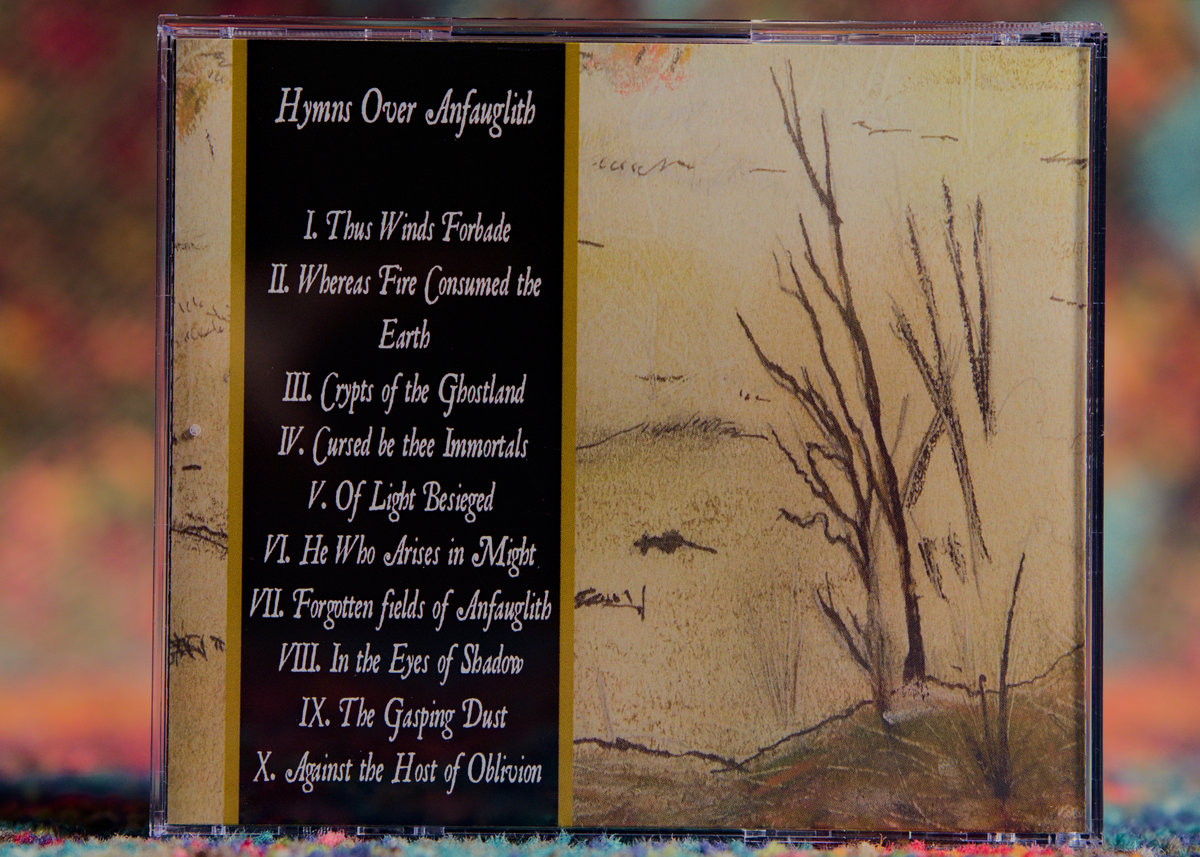 Hymns Over Anfauglith
I. Thus Winds Forbade
II. Whereas Fire Consumed the
Earth
III. Crypts of the Ghostland
IV. Cursed be thee Immortals
V. Of Light Besieged
VI. He Who Arises in Might
VII. Forgotten fields of Anfauglith
VIII. In the Eyes of Shadow
IX. The Gasping Dust
X. Against the Host of Oblivion